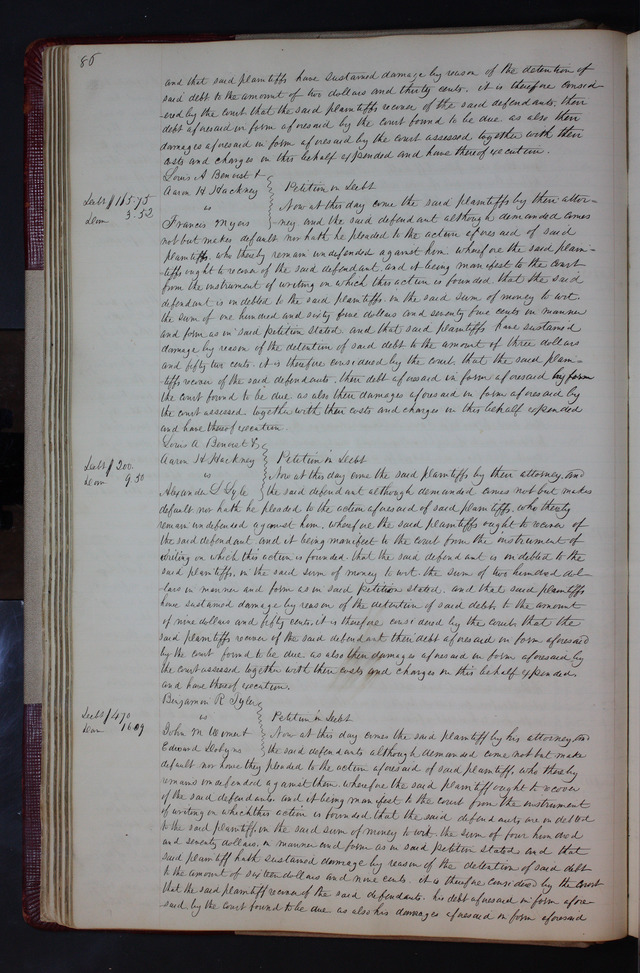 86
and that said plaintiffs have sustained damage by reason of the detention of
said debt to the amount of two dollars and thirty cents. it is therefore consid-
ered by the court that the said plaintiffs recover of the said defendants. their
debt aforesaid in form aforesaid by the court found to be due. as also their
damages aforesaid in form aforesaid by the court assessed together with their
costs and charges in this behalf expended and have thereof execution.
Louis A Benoist &
Aaron H Hackney Petition in Debt
Debt $165.75
vs Now at this day come the said plaintiffs by their attor-
Dam 3.52
Francis Myers ney and the said defendant although demanded comes
not but makes default nor hath he pleaded to the action aforesaid of said
plaintiffs, who thereby remain undefended against him wherefore the said plain-
tiffs ought to recover of the said defendant. and it being manifest to the court
from the instrument of writing on which this action is founded. that the said
defendant is indebted to the said plaintiffs. in the said sum of money to wit.
the sum of one hundred and sixty five dollars and seventy five cents in manner
and form as in said petition stated. and that said plaintiffs have sustained
damage by reason of the detention of said debt to the amount of three dollars
and fifty two cents. it is therefore considered by the court. that the said plain-
tiffs recover of the said defendants. their debt aforesaid in form aforesaid by form
the court found to be due as also their damages aforesaid in form aforesaid by
the court assessed. together with their costs and charges in this behalf expended
and have thereof execution.
Louis A. Benoist &
Aaron H Hackney Petition in Debt
Debt $200.
vs Now at this day come the said plaintiffs by their attorney. and
Dam 9.50
Alexander L Lyle the said defendant although demanded comes not but makes
default nor hath he pleaded to the action aforesaid of said plaintiffs, who thereby
remain undefended against him, wherefore the said plaintiffs ought to recover of
the said defendant. and it being manifest to the court from the instrument of
writing on which this action is founded. that the said defendant is indebted to the
said plaintiffs. in the said sum of money to wit the sum of two hundred dol-
lars in manner and form as in said petition stated. and that said plaintiffs
have sustained damage by reason of the detention of said debt. to the amount
of nine dollars and fifty cents. it is therefore considered by the court that the
said plaintiffs recover of the said defendant their debt aforesaid in form aforesaid
by the court found to be due. as also their damages aforesaid in form aforesaid by
the court assessed together with their costs and charges in this behalf expended.
and have thereof execution.
Benjamin R Tyler
vs Petition in Debt
Debt $470
John M Wment Now at this day comes the said plaintiff by his attorney, and
Dam 16.09
Edward the said defendants although demanded come not but make
default nor have they pleaded to the action aforesaid of said plaintiff, who thereby
remains undefended against them. wherefore the said plaintiff ought to recover
of the said defendants. and it being manifest to the court from the instrument
of writing on which this action is founded that the said defendants are indebted
to the said plaintiff. in the said sum of money to wit. the sum of four hundred
and seventy dollars. in manner and form as in said petition stated and that
said plaintiff hath sustained damage by reason of the detention of said debt
to the amount of sixteen dollars and nine cents. it is therefore considered by the court
that the said plaintiff recover of the said defendants. his debt aforesaid in form afore-
said by the court found to be due as also his damages aforesaid in form aforesaid